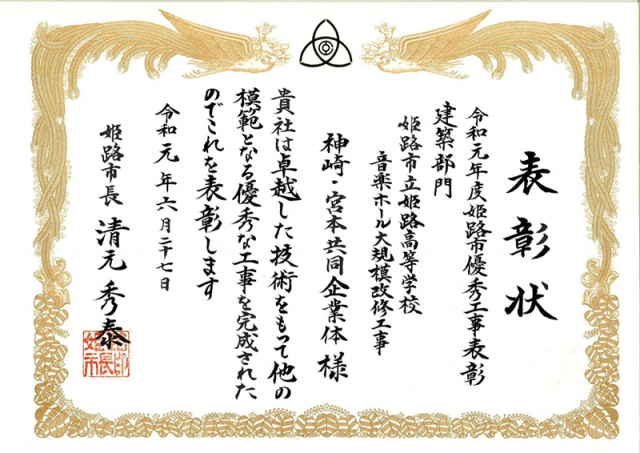 表彰状
令和元年度姫路市優秀工事表彰
建築部門
姫路市立姫路高等学校
音楽ホール大規模改修工事
神崎・宮本共同企業体 様
貴社は卓越した技術をもって他の
模範となる優秀な工事を完成された
のでこれを表彰します
令和元年六月二十七日
姫路市長 清元秀泰